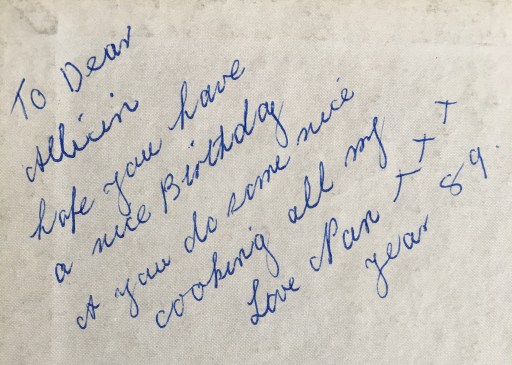 To Dear
Allicin
hope you have
a nice Birthday
& you do some nice
cooking all my
Love Nan + + +
year 89.